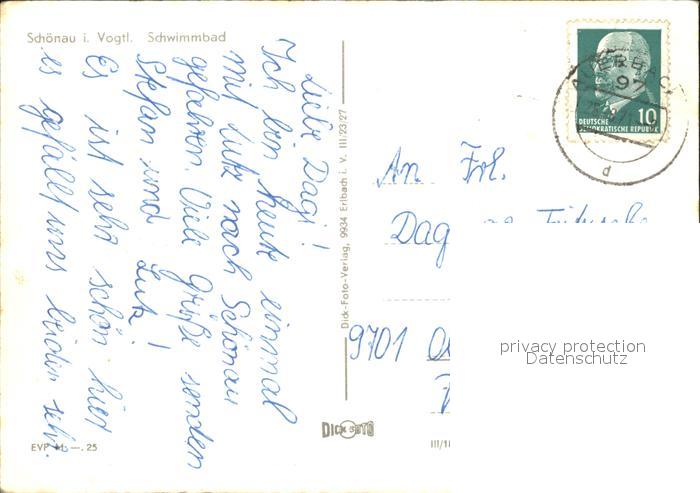 Schönau i. Vogtl. Schwimmbad
Liebe Dagi!
Ich bin heute einmal
mit Lutz nach Schönau
gefahren. Viele Grüße senden
Stefan und Lutz!
Es ist sehr schön hier
es gefällt uns beiden sehr.
EVP M —.25
Dick-Foto-Verlag, 9934 Erlbach i. V. III/23/27
DICK FOTO
AUERBACH
97
d
10
DEUTSCHE
DEMOKRATISCHE REPUBLIK
An Frl.
Dag
9701
III/1
privacy protection
Datenschutz